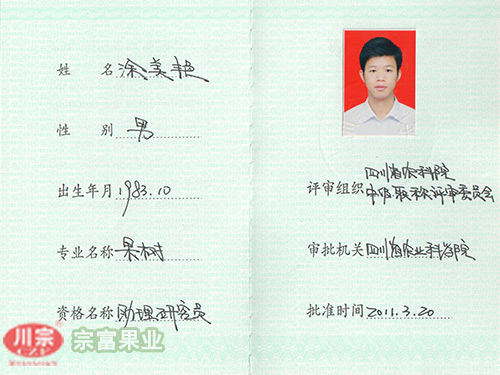 姓 名 涂美艳
性 别 男
出生年月 1983.10
专业名称 果树
资格名称 助理研究员
评审组织 四川省农科院
中级职称评审委员会
审批机关 四川省农业科学院
批准时间 2011.3.20
川宗
宗富果业